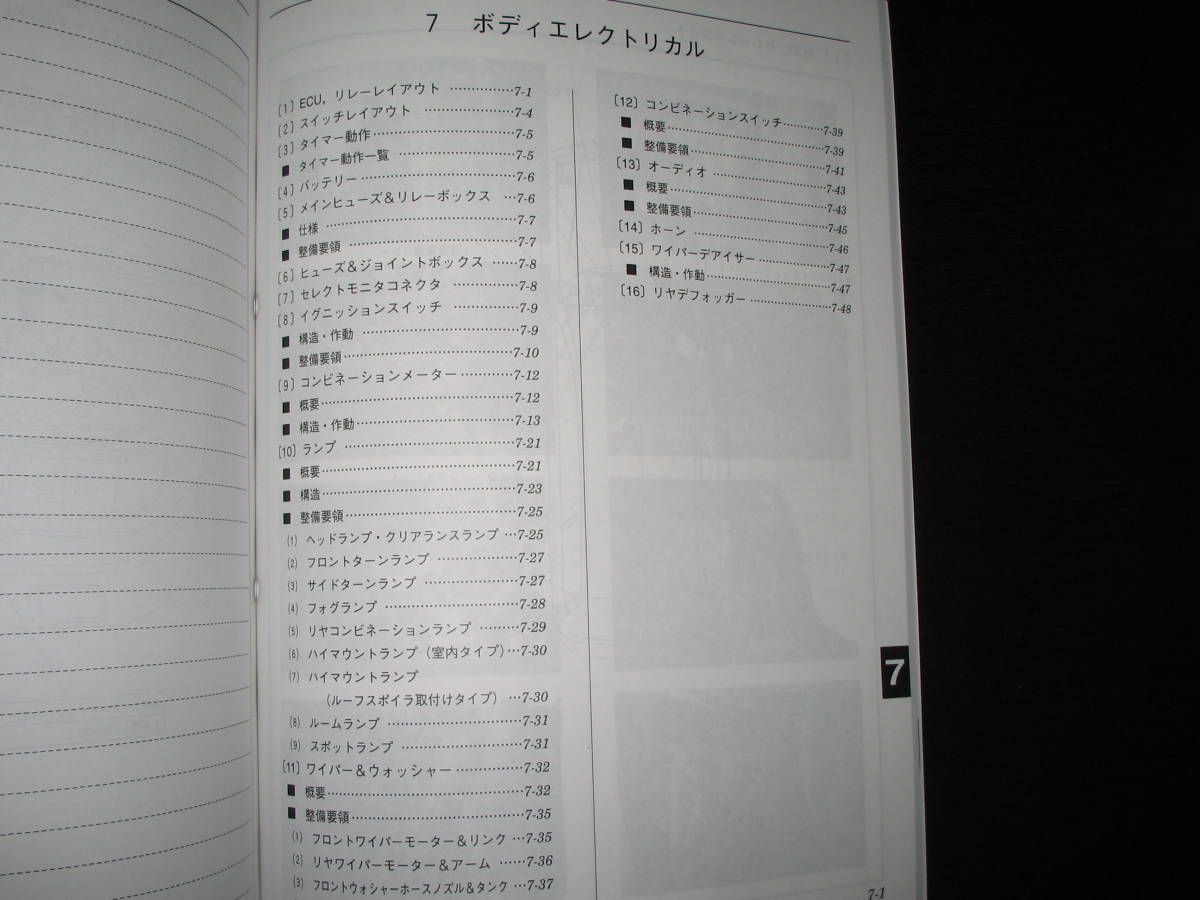 7 ボディエレクトリカル
〔1〕ECU，リレーレイアウト ……………7-1
〔2〕スイッチレイアウト …………………7-4
〔3〕タイマー動作……………………………7-5
■ タイマー動作一覧 ……………………7-5
〔4〕バッテリー………………………………7-6
〔5〕メインヒューズ＆リレーボックス …7-6
■ 仕様 ……………………………………7-7
■ 整備要領 ………………………………7-7
〔6〕ヒューズ＆ジョイントボックス ……7-8
〔7〕セレクトモニタコネクタ ……………7-8
〔8〕イグニッションスイッチ ……………7-9
■ 構造・作動 ……………………………7-9
■ 整備要領………………………………7-10
〔9〕コンビネーションメーター…………7-12
■ 概要……………………………………7-12
■ 構造・作動……………………………7-13
〔10〕ランプ ………………………………7-21
■ 概要……………………………………7-21
■ 構造……………………………………7-23
■ 整備要領………………………………7-25
⑴ ヘッドランプ・クリアランスランプ …7-25
⑵ フロントターンランプ ………………7-27
⑶ サイドターンランプ …………………7-27
⑷ フォグランプ …………………………7-28
⑸ リヤコンビネーションランプ ………7-29
⑹ ハイマウントランプ（室内タイプ）…7-30
⑺ ハイマウントランプ
（ルーフスポイラ取付けタイプ） …7-30
⑻ ルームランプ …………………………7-31
⑼ スポットランプ ………………………7-31
〔11〕ワイパー＆ウォッシャー……………7-32
■ 概要……………………………………7-32
■ 整備要領………………………………7-35
⑴ フロントワイパーモーター＆リンク …7-35
⑵ リヤワイパーモーター＆アーム ……7-36
⑶ フロントウォシャーホースノズル＆タンク …7-37
〔12〕コンビネーションスイッチ…………7-39
■ 概要……………………………………7-39
■ 整備要領………………………………7-41
〔13〕オーディオ …………………………7-43
■ 概要……………………………………7-43
■ 整備要領………………………………7-45
〔14〕ホーン ………………………………7-46
〔15〕ワイパーデアイサー ………………7-47
■ 構造・作動……………………………7-47
〔16〕リヤデフォッガー …………………7-48
7
7-1